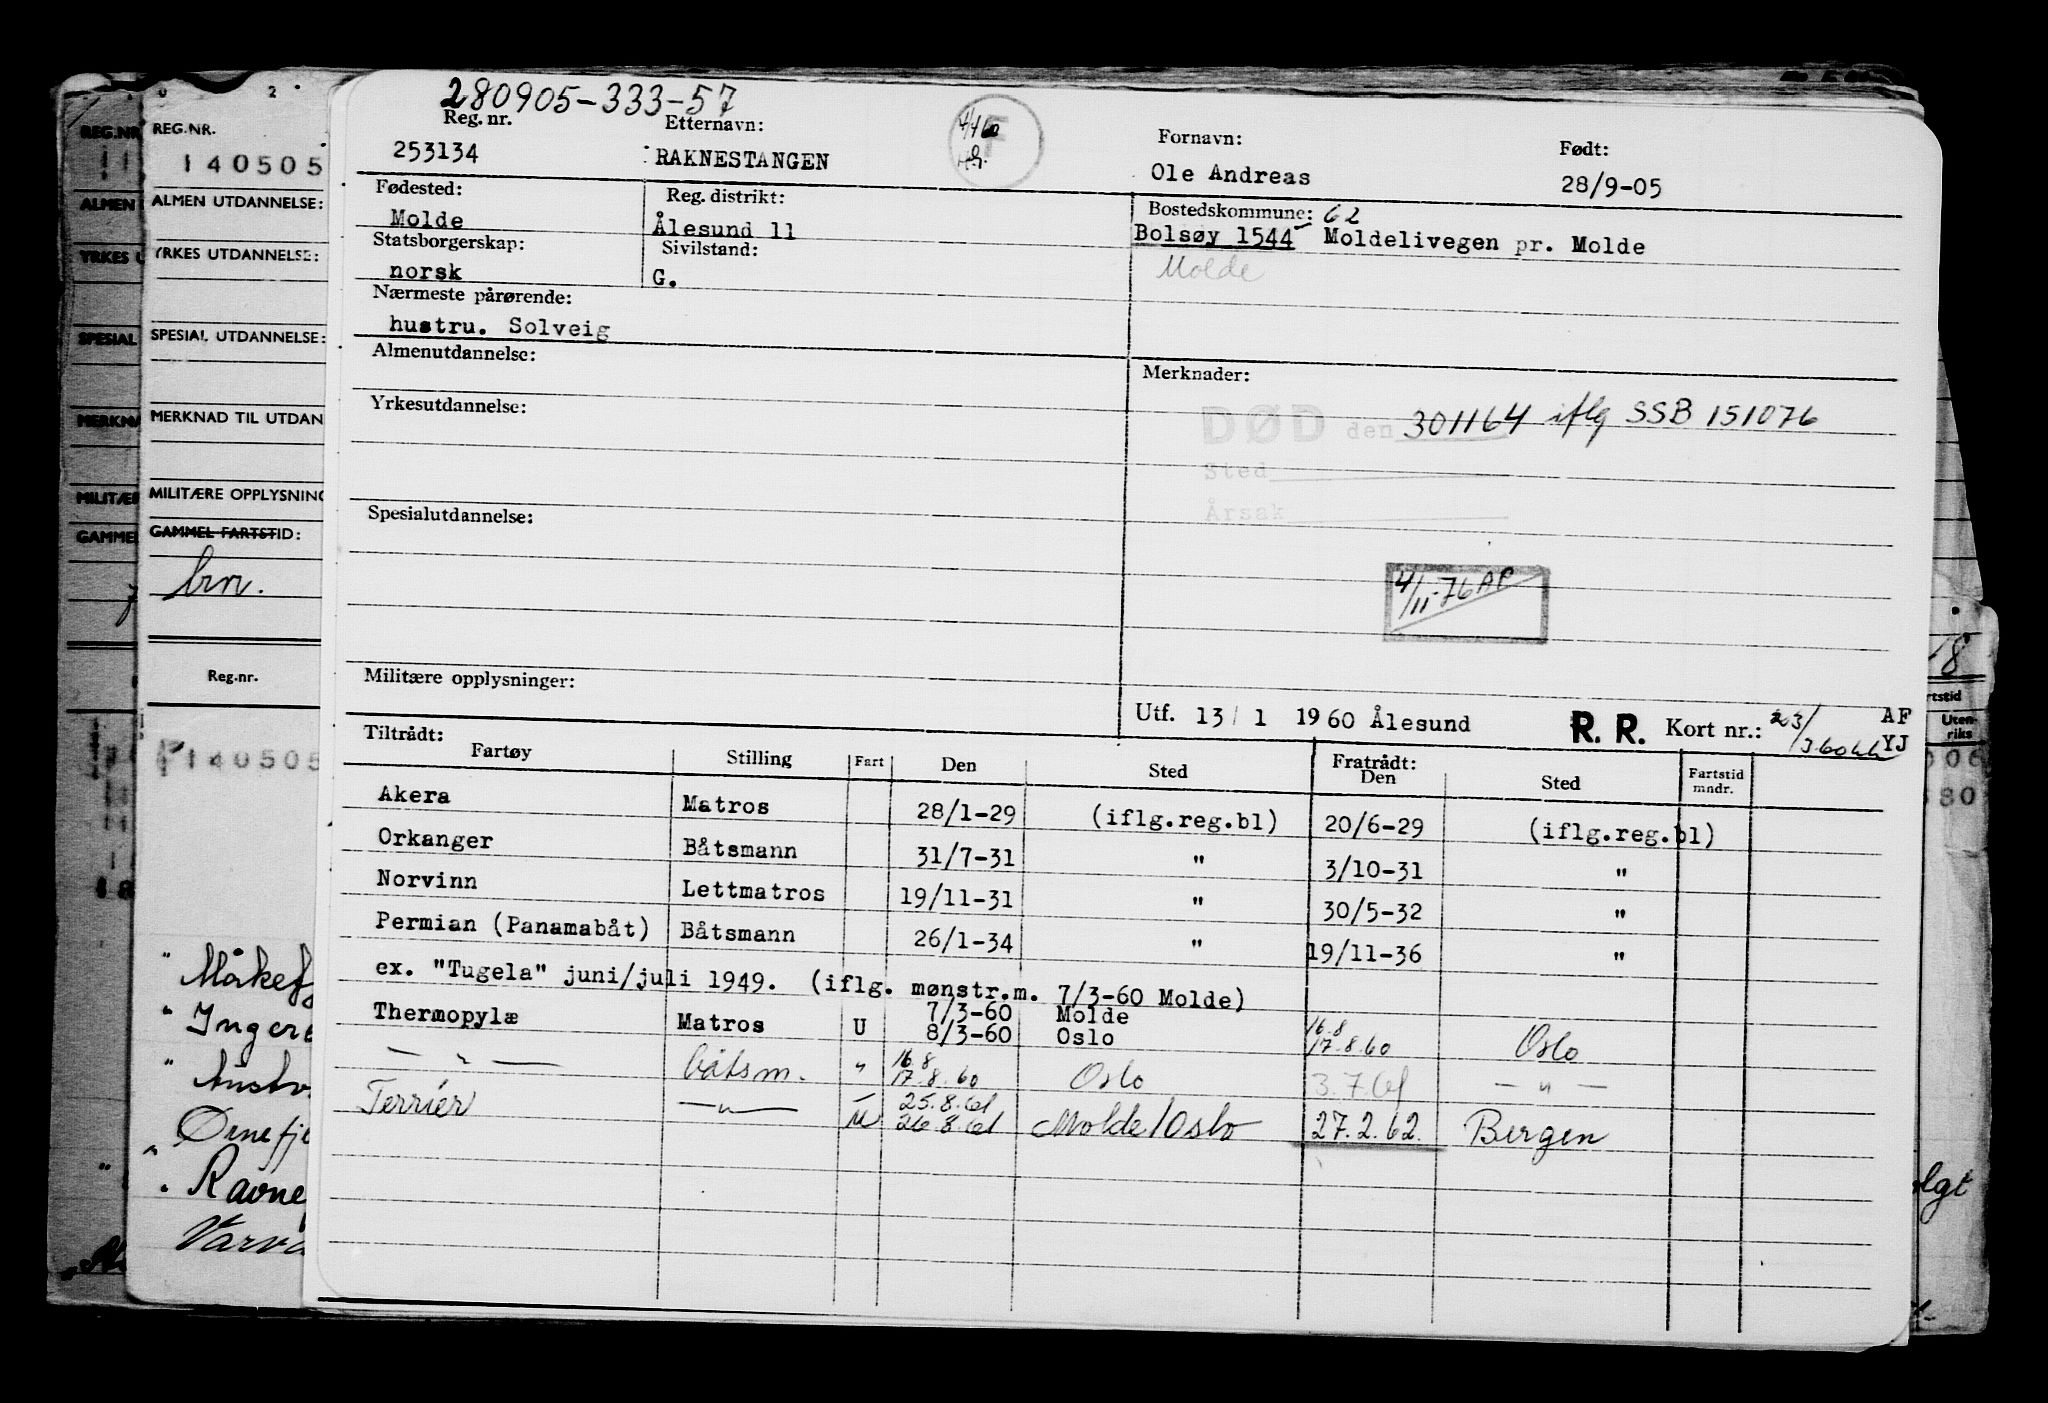 280905-333-57
Reg. nr. Etternavn: Fornavn: Født:
253134 RAKNESTANGEN F Ole Andreas 28/9-05
Fødested: Reg. distrikt: Bostedskommune: 62
Molde Ålesund 11 Bolsøy 1544 Moldelivegen pr. Molde
Statsborgerskap: Sivilstand: Molde
norsk G.
Nærmeste pårørende:
hustru. Solveig
Almenutdannelse: Merknader:
Yrkesutdannelse: DØD den 301164 iflg SSB 151076
Sted
Årsak
Spesialutdannelse:
4/11-76 AP
Militære opplysninger:
Utf. 13/1 1960 Ålesund R. R. Kort nr.: AF
YJ
Tiltrådt: Fratrådt:
Fartøy Stilling Fart Den Sted Den Sted Fartstid mndr.
Akera Matros 28/1-29 (iflg.reg.bl) 20/6-29 (iflg.reg.bl)
Orkanger Båtsmann 31/7-31 " 3/10-31 "
Norvinn Lettmatros 19/11-31 " 30/5-32 "
Permian (Panamabåt) Båtsmann 26/1-34 " 19/11-36 "
ex. "Tugela" juni/juli 1949. (iflg. mønstr.m. 7/3-60 Molde)
7/3-60 Molde
Thermopylæ Matros U 8/3-60 Oslo 16.8 17.8.60 Oslo
— " — båtsm. " 16.8 17.8.60 Oslo 3.7.61 — " —
Terrier — " — U 25.8.61 26.8.61 Molde/Oslo 27.2.62. Bergen
REG.NR.
REG.NR.
140505
ALMEN
ALMEN UTDANNELSE:
YRKES U
YRKES UTDANNELSE:
SPESIAL
SPESIAL UTDANNELSE:
MERKNA
MERKNAD TIL UTDAN
MILITÆR
MILITÆRE OPPLYSNING
GAMMEL
GAMMEL FARTSTID:
Reg.nr.
140505
rtstid
Uten-
riks
006
380
olgt